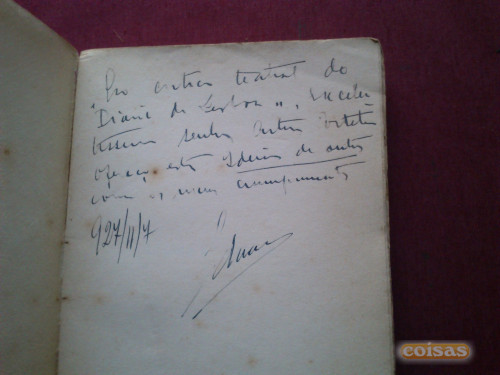 "Ao critico teatral do
Diario de Lisboa", Excelen
tissimo senhor Artur
ofereço este Ideias de outros
com os meus cumprimentos
927/11/7
coisas